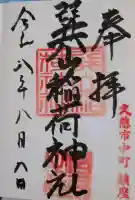 奉拝
巽山稲荷神社
令和八年八月八日
久慈市中町 鎮座